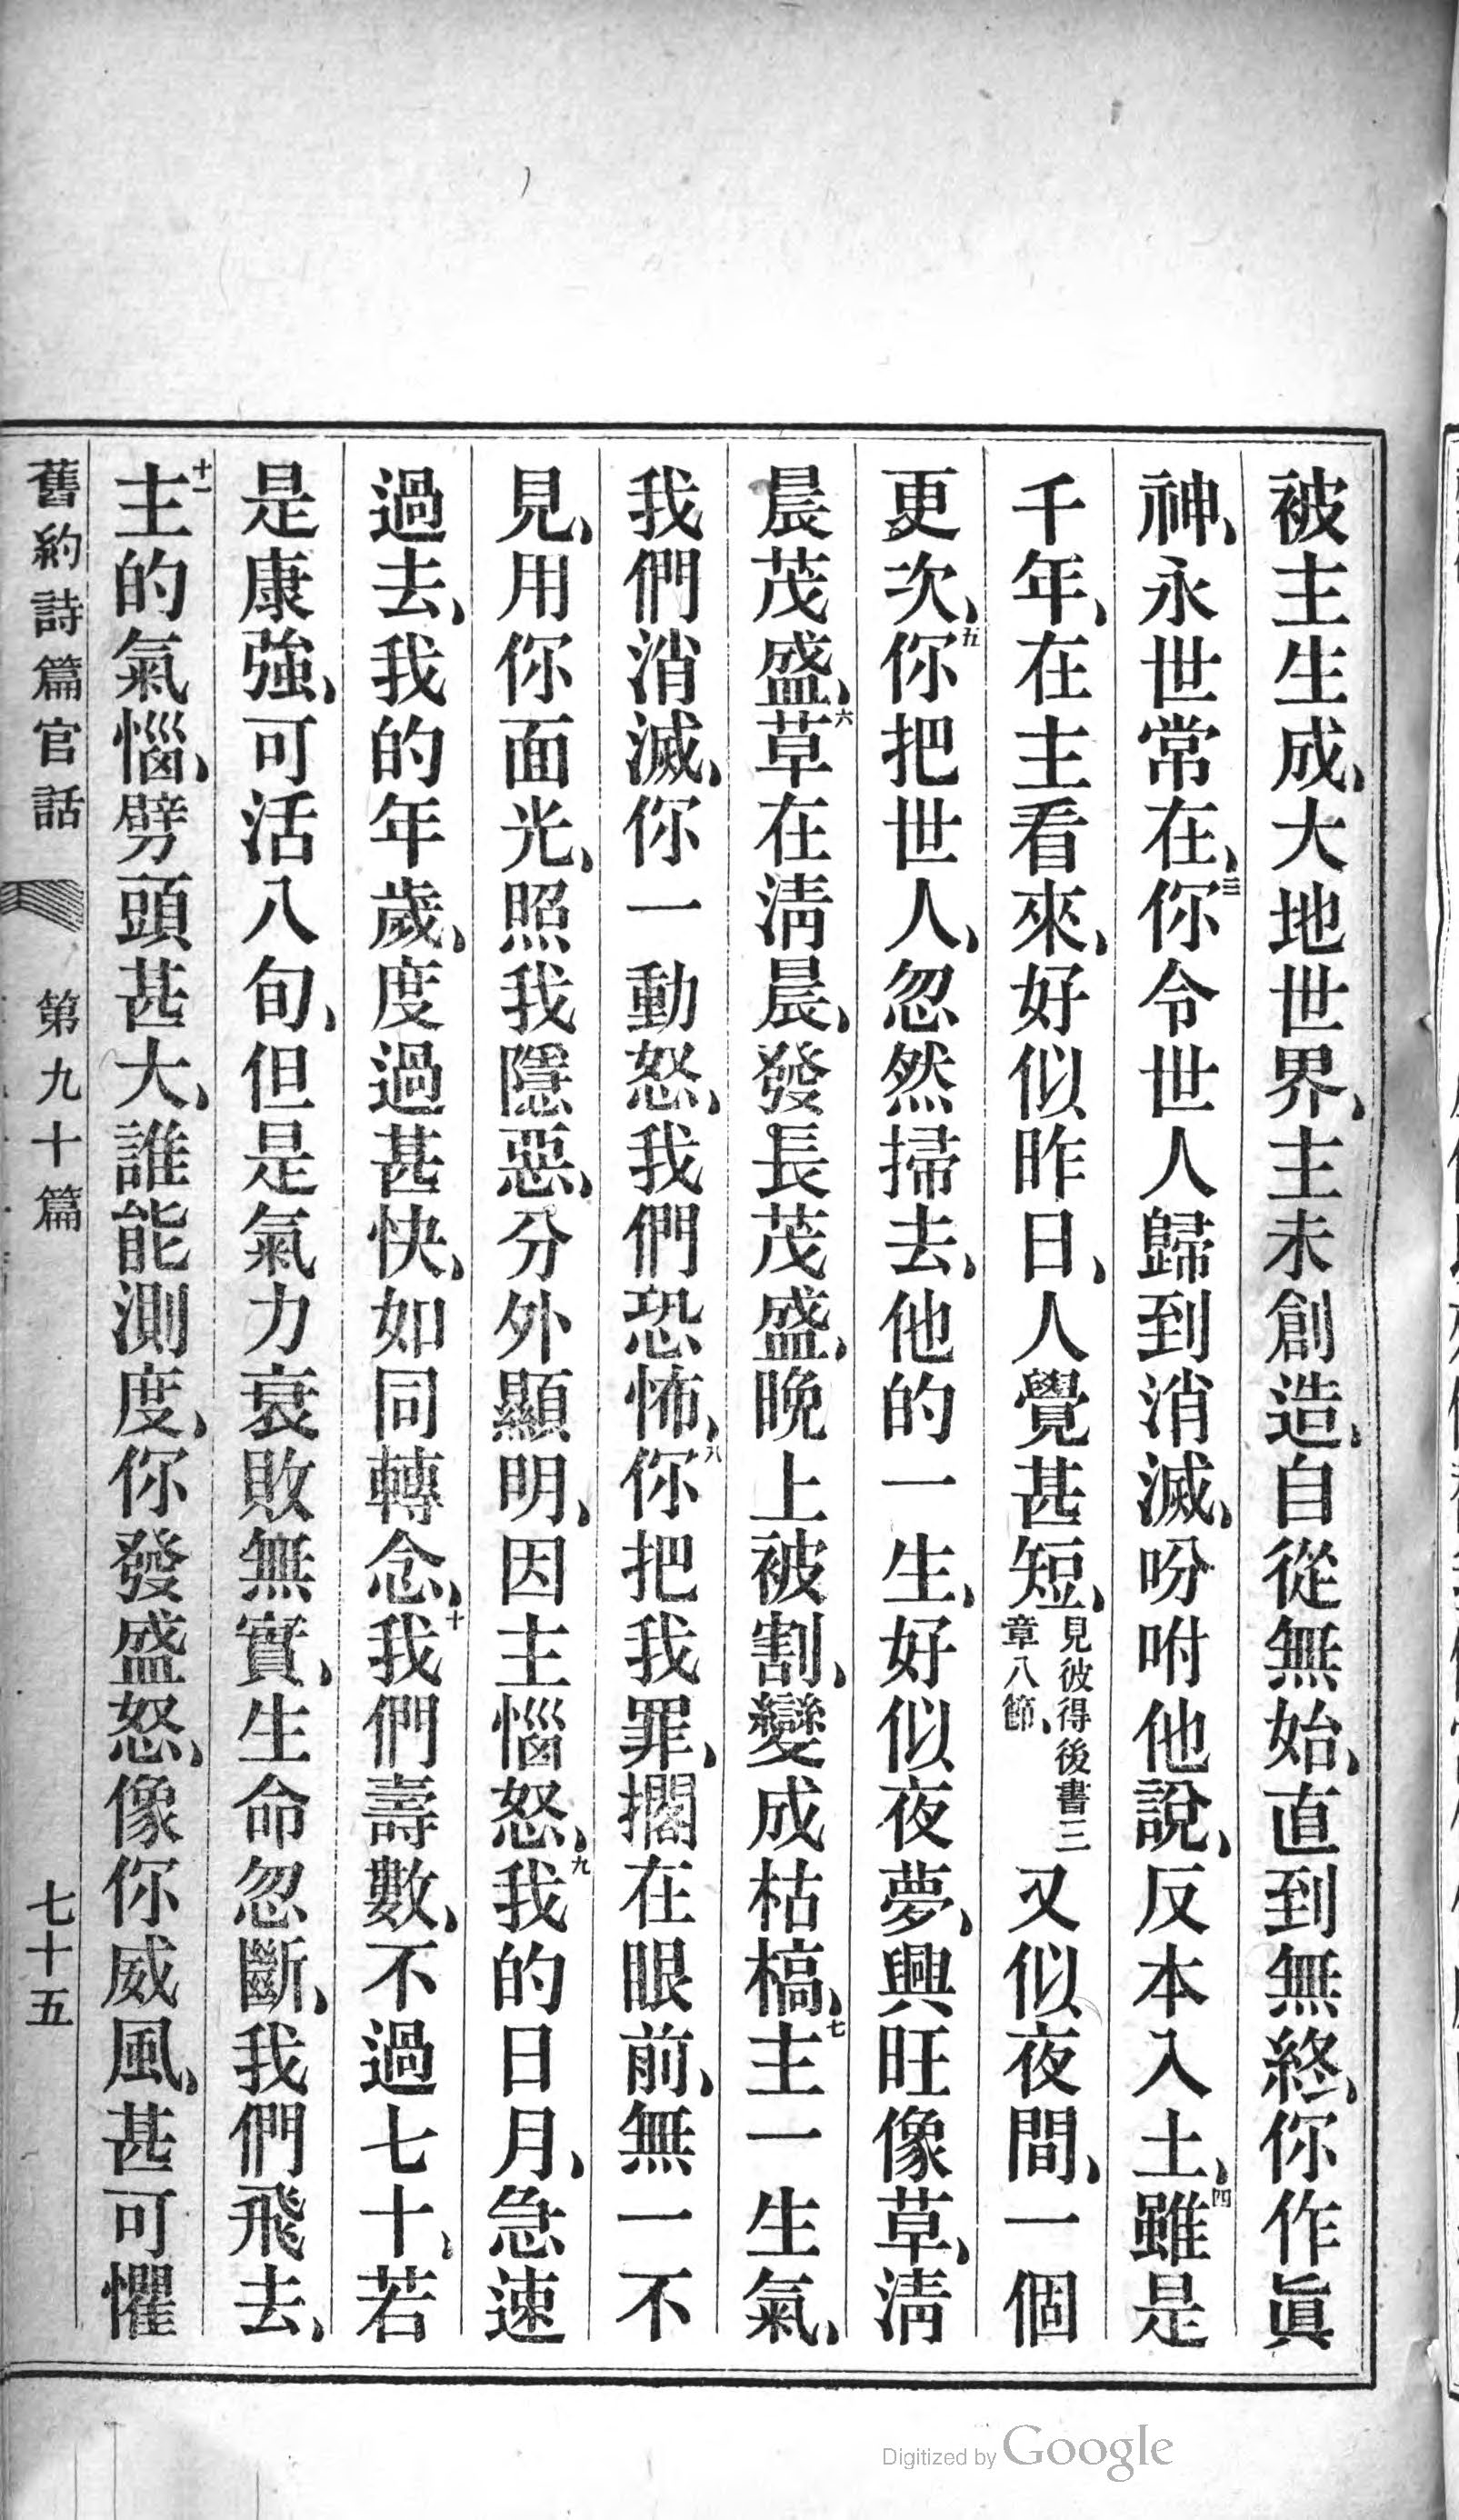 被主生成、大地世界、主未創造、自從無始、直到無終、你作眞
神、永世常在、三你令世人歸到消滅、吩咐他說、反本入土、四雖是
千年、在主看來、好似昨日、人覺甚短、見彼得後書三章八節、又似夜間、一個
更次、五你把世人、忽然掃去、他的一生、好似夜夢、興旺像草、淸
晨茂盛、六草在淸晨、發長茂盛、晚上被割、變成枯槁、七主一生氣、
我們消滅、你一動怒、我們恐怖、八你把我罪、擱在眼前、無一不
見、用你面光、照我隱惡、分外顯明、因主惱怒、九我的日月、急速
過去、我的年歲、度過甚快、如同轉念、十我們壽數、不過七十、若
是康強、可活八旬、但是氣力衰敗無實、生命忽斷、我們飛去、
十一主的氣惱、劈頭甚大、誰能測度、你發盛怒、像你威風、甚可懼
舊約詩篇官話 第九十篇 七十五
Digitized by Google